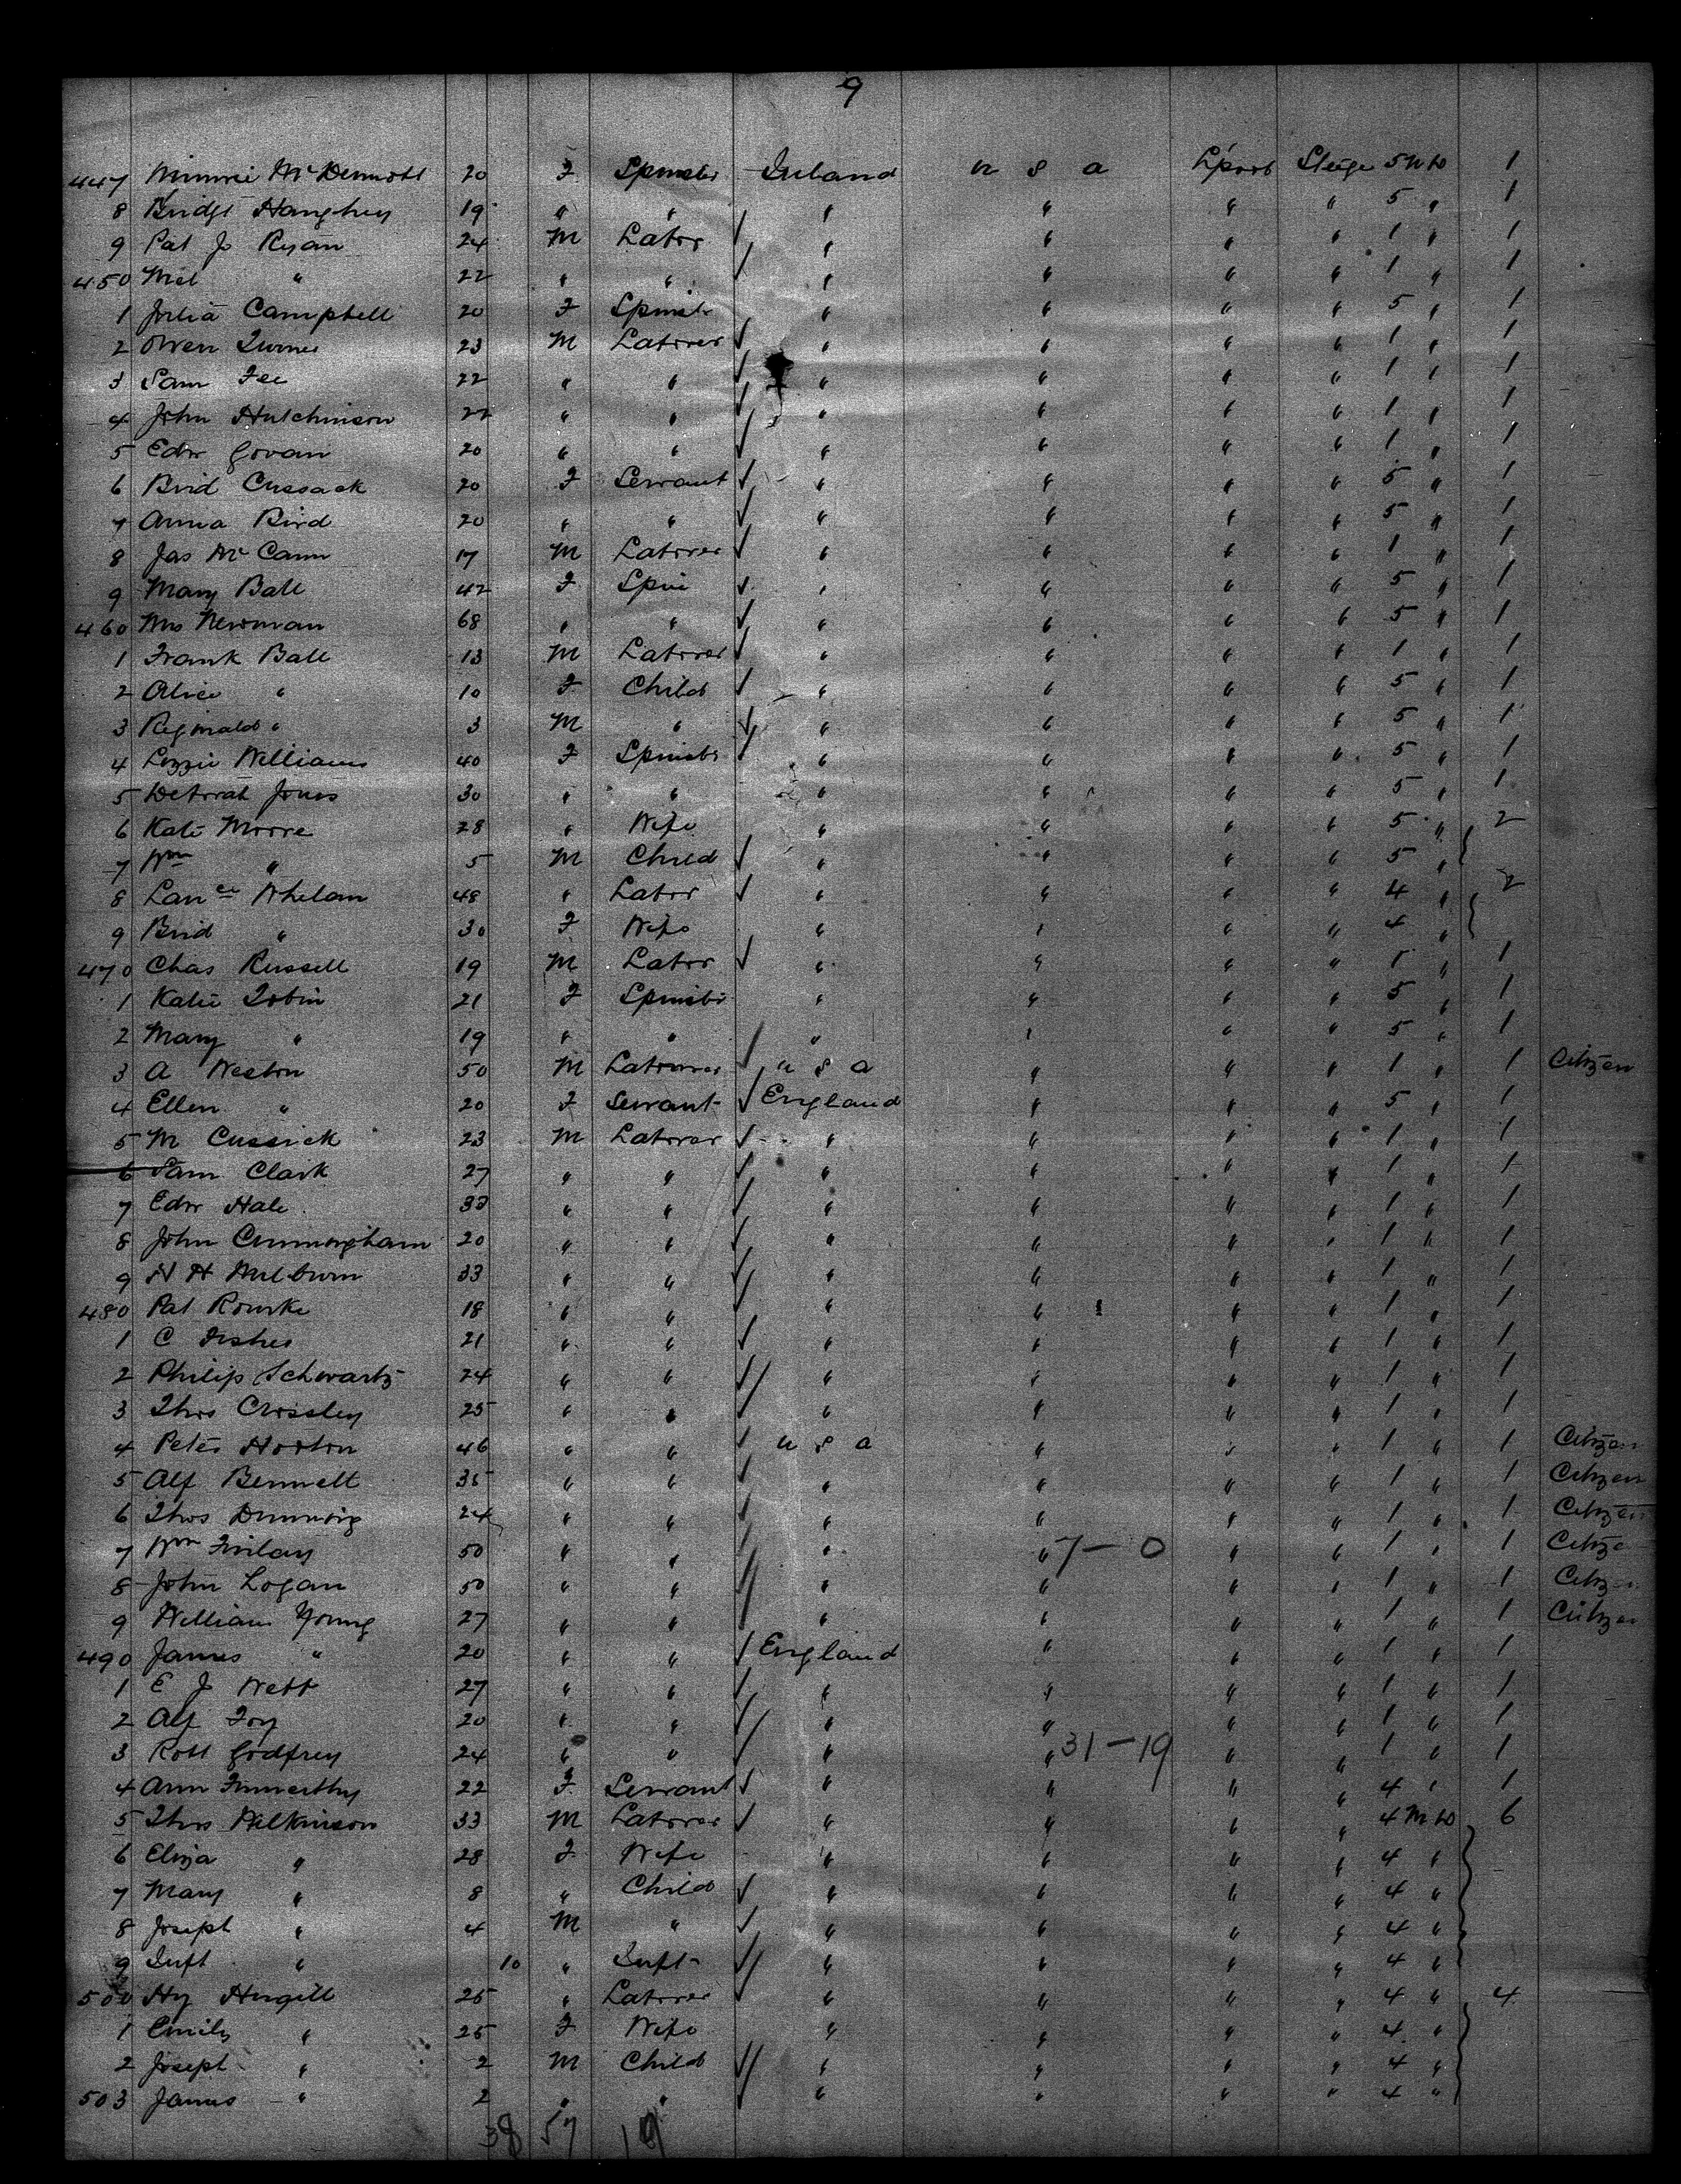 9
447 Minnie McDermott 20 F Spinster Ireland U S A L'pool Steige 5 W to 1
8 Bridgt Haughey 19 " " " " " " 5 " 1
9 Pat Jo Ryan 24 M Labor " " " " 1 " 1
450 Micl " 22 " " " " " " 1 " 1
1 Julia Campbell 20 F Spinstr " " " " 5 " 1
2 Owen Turner 23 M Laborer " " " " 1 " 1
3 Sam Fee 22 " " " " " " 1 " 1
4 John Hutchinson 22 " " " " " " 1 " 1
5 Edw Govan 20 " " " " " " 1 " 1
6 Brid Cussack 20 F Servant " " " " 5 " 1
7 Anna Bird 20 " " " " " " 5 " 1
8 Jas McCann 17 M Laborer " " " " 1 " 1
9 Mary Ball 42 F Spin " " " " 5 " 1
460 Mrs Newman 68 " " " " " " 5 " 1
1 Frank Ball 13 M Laborer " " " " 1 " 1
2 Alice " 10 F Child " " " " 5 " 1
3 Reginald " 3 M " " " " " 5 " 1
4 Lizzie Williams 40 F Spinstr " " " " 5 " 1
5 Deborah Jones 30 " " " " " " 5 " 1
6 Kate Moore 28 " Wife " " " " 5 " 2
7 Wm " 5 M Child " " " " 5 "
8 Lance Whelan 48 " Labor " " " " 4 " 2
9 Brid " 30 F Wife " " " " 4 "
470 Chas Russell 19 M Labor " " " " 1 " 1
1 Katie Tobin 21 F Spinstr " " " " 5 " 1
2 Mary " 19 " " " " " " 5 " 1
3 A Weston 50 M Labourer U S A " " " 1 " 1 Citizen
4 Ellen " 20 F Servant England " " " 5 " 1
5 M Cussick 23 M Laborer " " " " 1 " 1
6 Sam Clark 27 " " " " " " 1 " 1
7 Edw Hale 33 " " " " " " 1 " 1
8 John Cunningham 20 " " " " " " 1 " 1
9 H H Milburn 33 " " " " " " 1 " 1
480 Pat Rourke 18 " " " " " " 1 " 1
1 C Fisher 21 " " " " " " 1 " 1
2 Philip Schwartz 24 " " " " " " 1 " 1
3 Thos Crossley 25 " " " " " " 1 " 1
4 Peter Horton 46 " " U S A " " " 1 " 1 Citizen
5 Alf Bennett 35 " " " " " " 1 " 1 Citizen
6 Thos Dunning 24 " " " " " " 1 " 1 Citizen
7 Wm Finlay 50 " " " " 7-0 " " 1 " 1 Citize
8 John Logan 50 " " " " " " 1 " 1 Citizen
9 William Young 27 " " " " " " 1 " 1 Citizen
490 James " 20 " " England " " " 1 " 1
1 E J Webb 27 " " " " " " 1 " 1
2 Alf Foy 20 " " " " " " 1 " 1
3 Robt Godfrey 24 " " " " 31-19 " " 1 " 1
4 Ann 22 F Servant " " " " 4 " 1
5 Thos Wilkinson 33 M Laborer " " " " 4 M to 6
6 Eliza " 28 F Wife " " " " 4 "
7 Mary " 8 " Child " " " " 4 "
8 Joseph " 4 M " " " " " 4 "
9 Inft " 10 " Inft " " " " 4 "
500 Hy Hugill 25 " Laborer " " " " 4 " 4
1 Emily " 25 F Wife " " " " 4 "
2 Joseph " 2 M Child " " " " 4 "
503 James " 2 " " " " " " 4 "
38 57 19